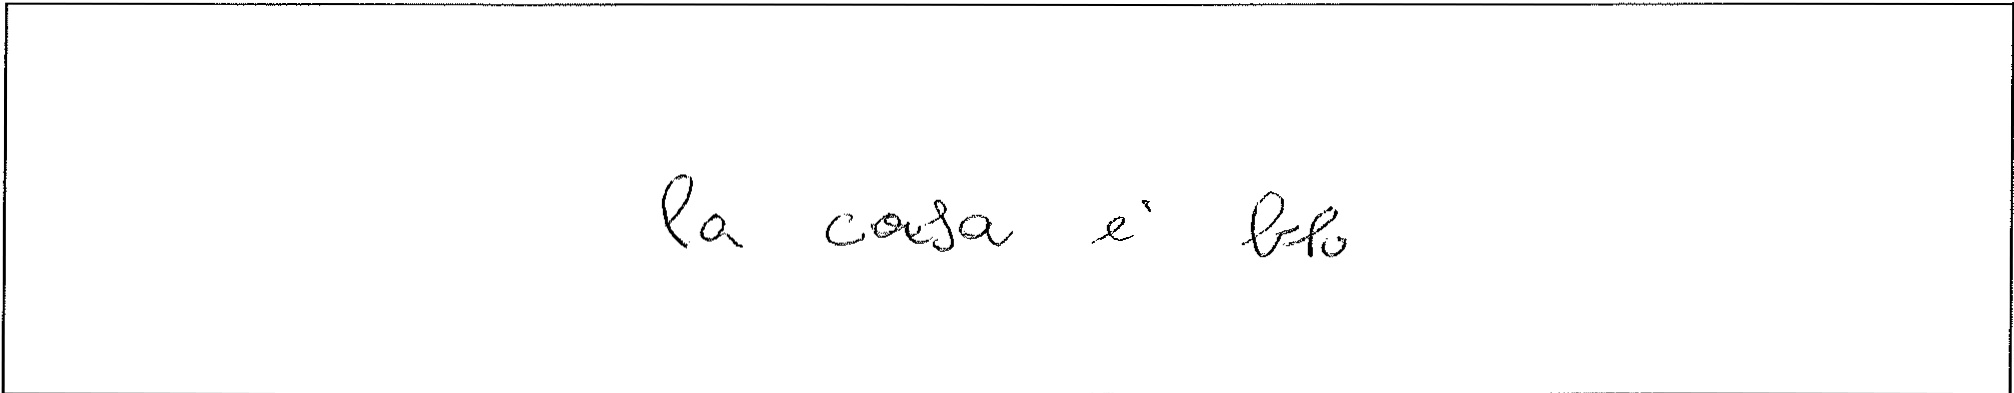 la casa è blo